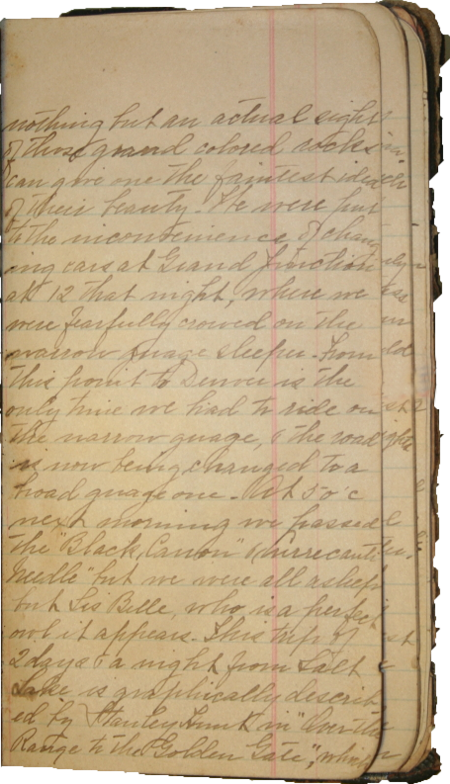 nothing but an actual sight
of those grand colored rocks
can give one the faintest idea
of their beauty. We were put
to the inconvenience of chang
ing cars at Grand Junction
at 12 that night, where we
were fearfully crowed on the
narrow guage sleeper. From
this point to Denver is the
only time we had to ride on
the narrow guage, & the road
is now being changed to a
broad guage one - At 5 o'c
next morning we passed
the "Black Canon" & Currecanti
Needle" but we were all asleep
but Sis Belle, who is a perfect
owl it appears. This trip of
2 days & a night from Salt
Lake is graphically describ
ed by Stanley Hunt in "Over the
Range to the Golden Gate", which